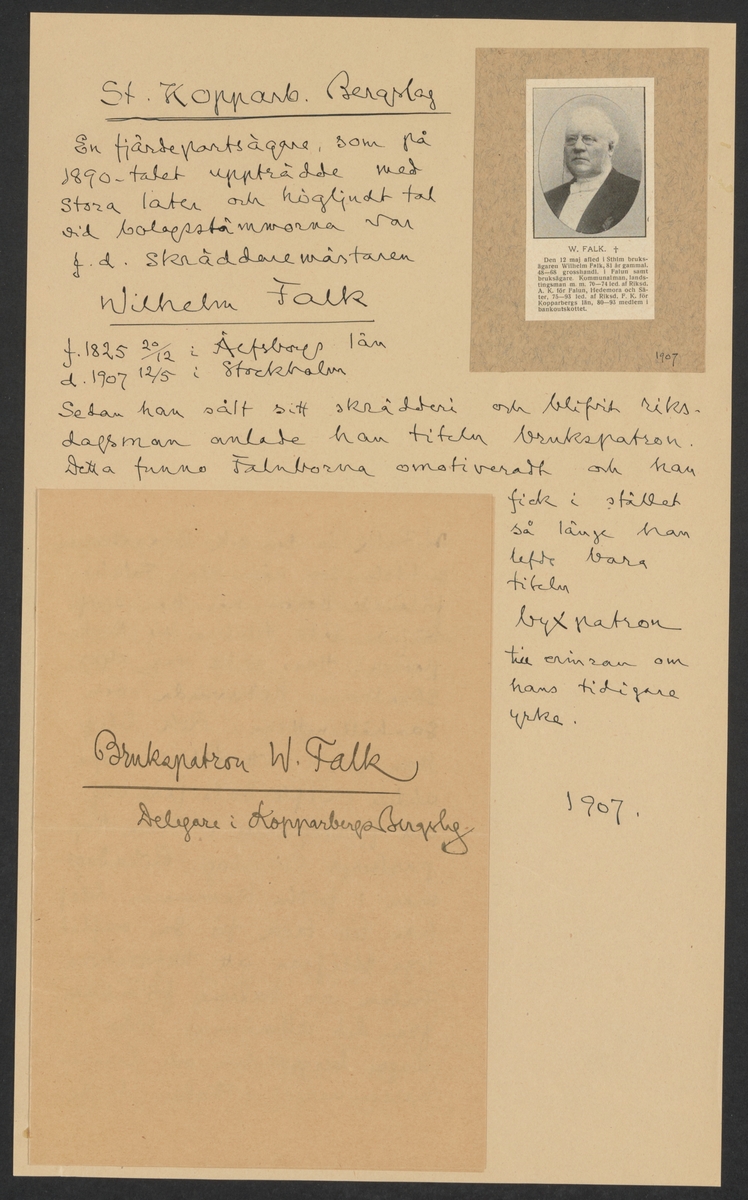 St. Kopparb. Bergslag
En fjärdepartsägare, som på
1890-talet uppträdde med
stora later och högljudt tal
vid bolagsstämmorna var
f. d. skräddaremästaren
Wilhelm Falk
f. 1825 20/12 i Älfsborgs län
d. 1907 12/5 i Stockholm
W. FALK. †
Den 12 maj afled i Sthlm bruks-
ägaren Wilhelm Falk, 81 år gammal.
48—68 grosshandl. i Falun samt
bruksägare. Kommunalman, lands-
tingsman m. m. 70—74 led. af Riksd.
A. K. för Falun, Hedemora och Sä-
ter, 75—93 led. af Riksd. F. K. för
Kopparbergs län, 80—93 medlem i
bankoutskottet.
1907
Sedan han sålt sitt skrädderi och blifvit riks-
dagsman anlade han titeln brukspatron.
Detta funno Faluborna omotiveradt och han
fick i stället
så länge han
lefde bara
titeln
byxpatron
till erinran om
hans tidigare
yrke.
1907.
Brukspatron W. Falk
Delegare i Kopparbergs Bergslag